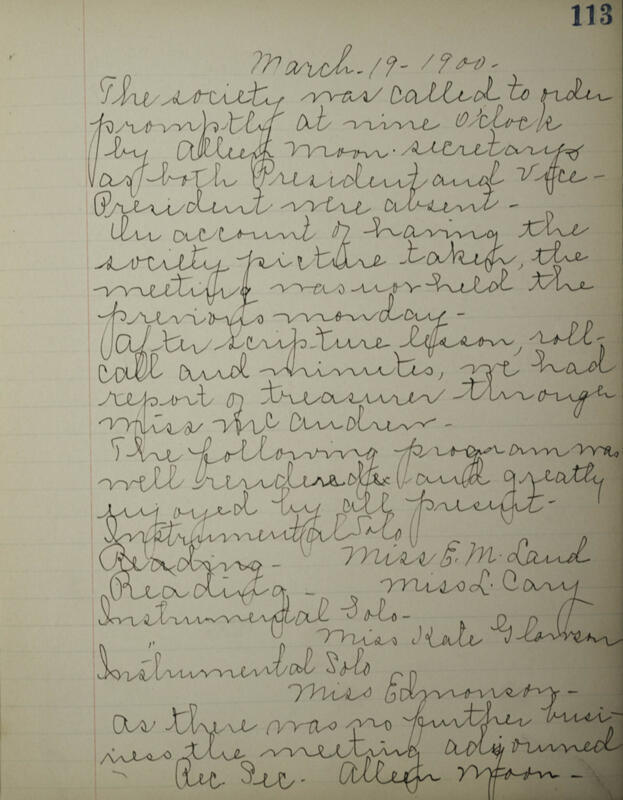 113
March-19-1900-
The society was called to order
promptly at nine O'clock
by Alleen Moon. secretary
as both President and Vice-
President were absent-
On account of having the
society picture taken, the
meeting was not held the
previous monday-
After scripture lesson, roll-
call and minutes, we had
report of treasurer through
Miss McAndrew-
The following program was
well rendered and greatly
enjoyed by all present-
Instrumental Solo
Reading- Miss E. M. Land
Reading- Miss L. Cary
Instrumental Solo-
Miss Kate
Instrumental Solo
Miss Edmonson-
As there was no further busi-
ness the meeting adjourned
Rec. Sec. Alleen Moon-